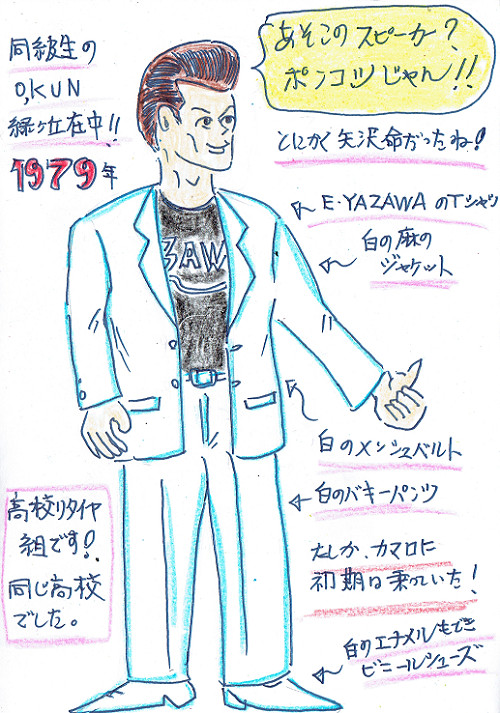 同級生の
O,KUN
緑ヶ丘在中!!
1979年
あそこのスピーカー?
ポンコツじゃん!!
とにかく矢沢命だったね!
E・YAZAWAのTシャツ
白の麻の
ジャケット
ZAWA
白のメンシュベルト
白のバキーパンツ
たしか、カマロに
初期は乗っていた!
白のエナメルもどき
ビニールシューズ
高校リタイヤ
組です!
同じ高校
でした。